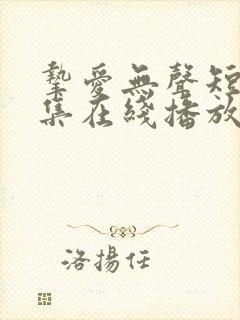 摯愛無聲短
集在綫播放
洛揚任